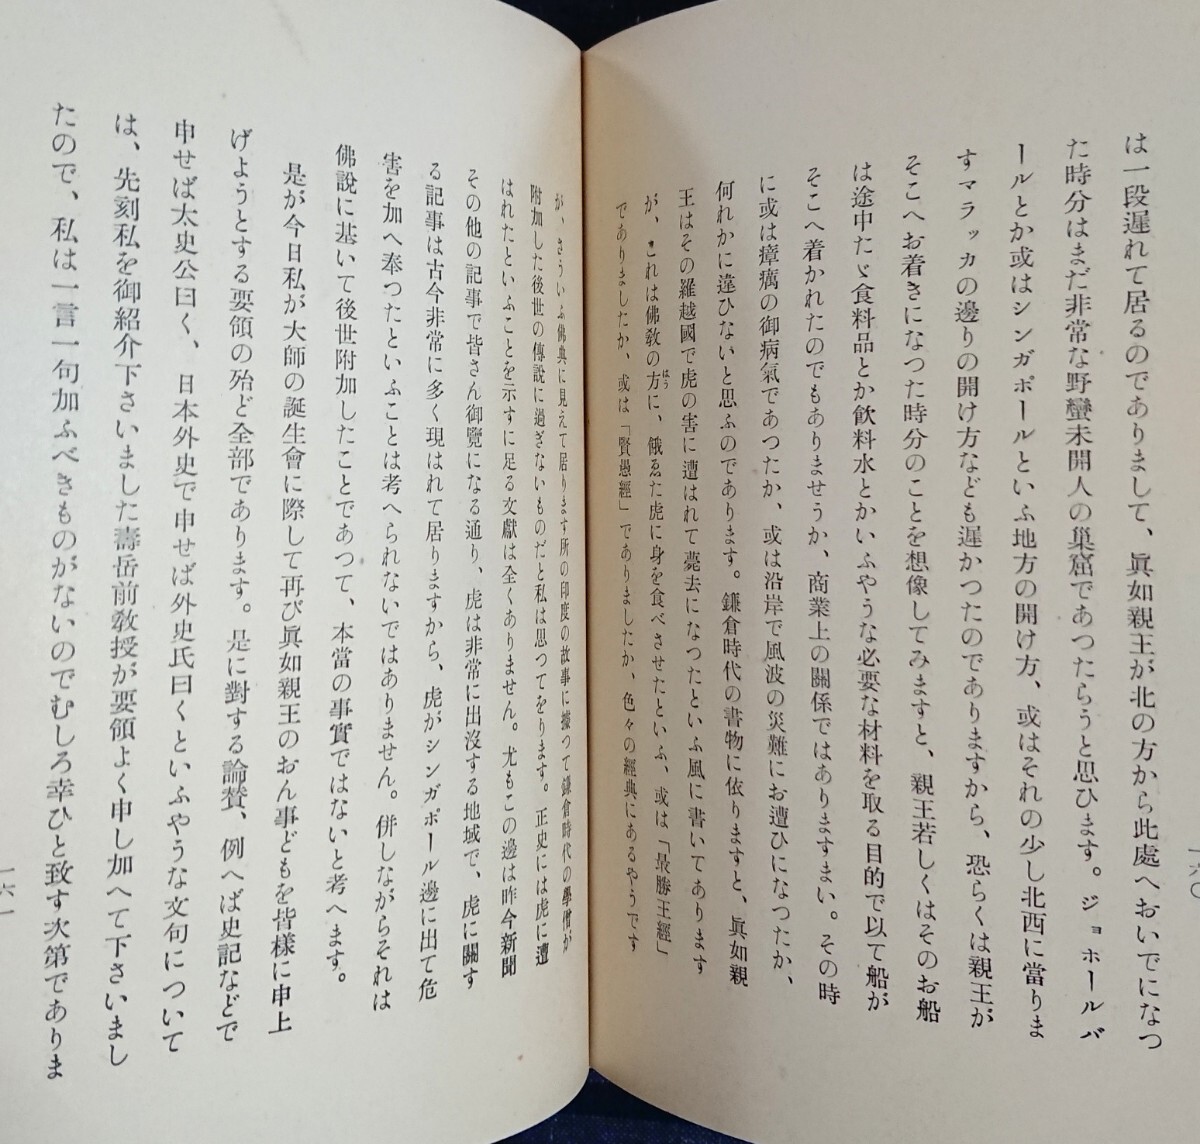 は一段遲れて居るのでありまして、眞如親王が北の方から此處へおいでになつ
た時分はまだ非常な野蠻未開人の巢窟であつたらうと思ひます。ジョホールバ
ールとか或はシンガポールといふ地方の開け方、或はそれの少し北西に當りま
すマラッカの邊りの開け方なども遲かつたのでありますから、恐らくは親王が
そこへお着きになつた時分のことを想像してみますと、親王若しくはそのお船
は途中たゞ食料品とか飲料水とかいふやうな必要な材料を取る目的で以て船が
そこへ着かれたのでもありませうか、商業上の關係ではありますまい。その時
に或は瘴癘の御病氣であつたか、或は沿岸で風波の災難にお遭ひになつたか、
何れかに違ひないと思ふのであります。鎌倉時代の書物に依りますと、眞如親
王はその羅越國で虎の害に遭はれて薨去になつたといふ風に書いてあります
が、これは佛敎の方に、餓ゑた虎に身を食べさせたといふ、或は「最勝王經」
はう
でありましたか、或は「賢愚經」でありましたか、色々の經典にあるやうです
一六〇
が、さういふ佛典に見えて居ります所の印度の故事に據つて鎌倉時代の學僧が
附加した後世の傳說に過ぎないものだと私は思つてをります。正史には虎に遭
はれたといふことを示すに足る文獻は全くありません。尤もこの邊は昨今新聞
その他の記事で皆さん御覽になる通り、虎は非常に出沒する地域で、虎に關す
る記事は古今非常に多く現はれて居りますから、虎がシンガポール邊に出て危
害を加へ奉つたといふことは考へられないではありません。併しながらそれは
佛說に基いて後世附加したことであつて、本當の事實ではないと考へます。
是が今日私が大師の誕生會に際して再び眞如親王のおん事どもを皆樣に申上
げようとする要領の殆ど全部であります。是に對する論贊、例へば史記などで
申せば太史公曰く、日本外史で申せば外史氏曰くといふやうな文句について
は、先刻私を御紹介下さいました壽岳前敎授が要領よく申し加へて下さいまし
たので、私は一言一句加ふべきものがないのでむしろ幸ひと致す次第でありま
一六一